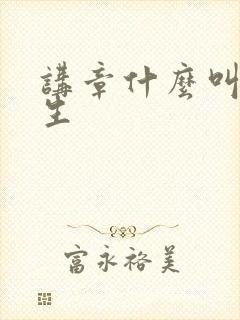 講章什麼叫
生
富永裕美